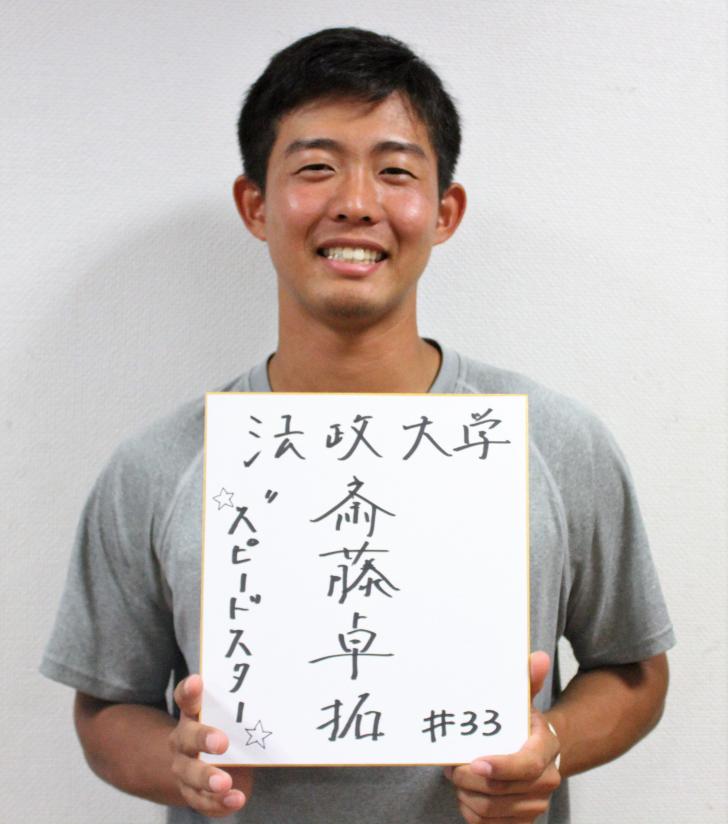 法政大学
斎藤卓拓
#33
☆〃スピードスター☆